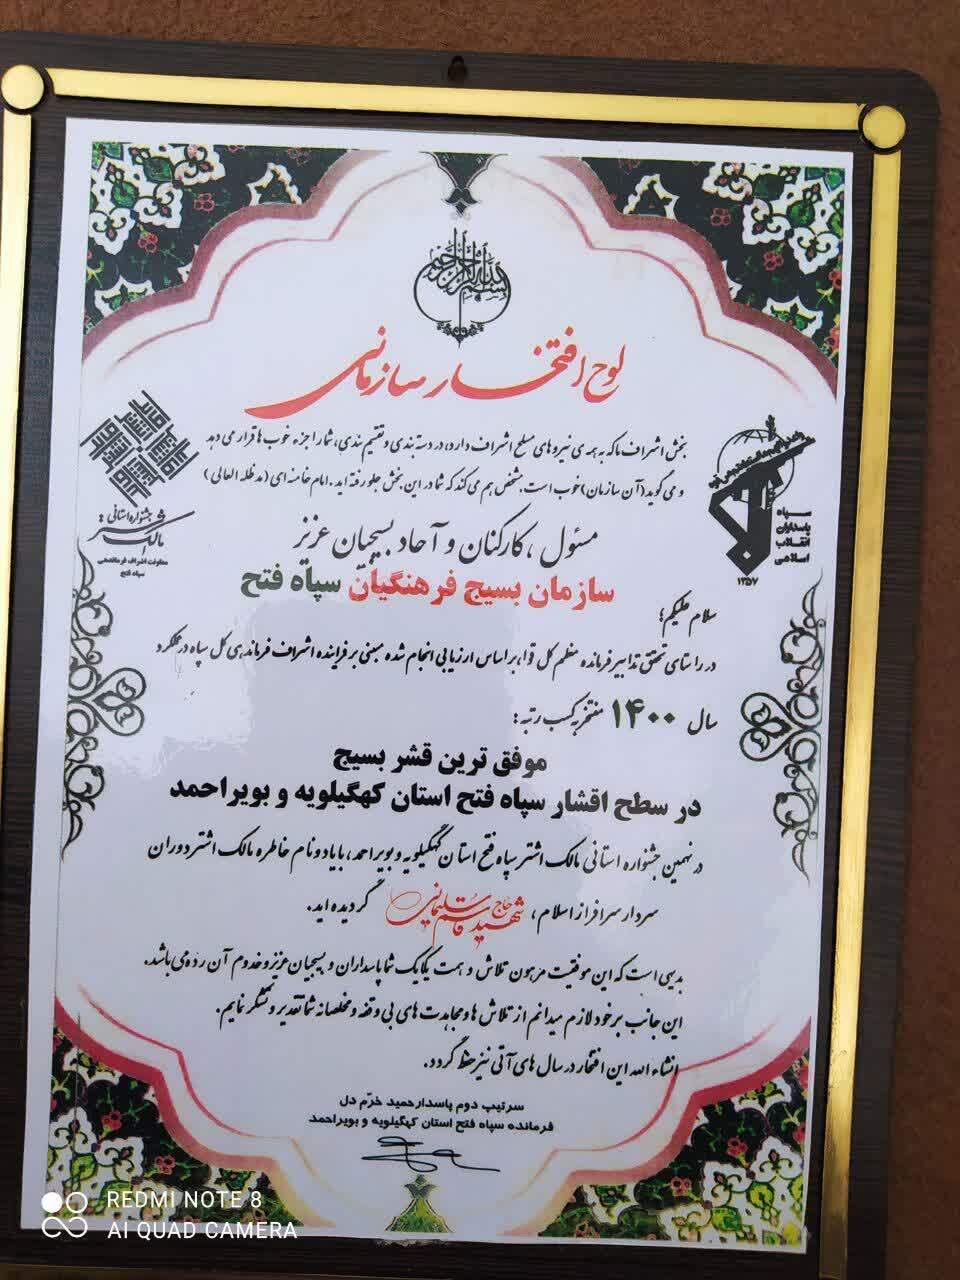 بسم الله الرحمن الرحیم
لوح افتخار سازمانی
بخش اشراف ماکه به همه ی نیروهای مسلح اشراف دارد، در دسته بندی و تقسیم بندی، شما را جزء خوب ها قرار می دهد
و می گوید (آن سازمان) خوب است. مشخص هم می کند که شما در این بخش جلو رفته اید. امام خامنه ای (مدظله العالی)
جشنواره استانی
مالک اشتر
معاونت اشراف فرماندهی
سپاه فتح
سپاه
پاسداران
انقلاب
اسلامی
۱۳۵۷
مسئول، کارکنان و آحاد بسیجیان عزیز
سازمان بسیج فرهنگیان سپاه فتح
سلام علیکم؛
در راستای تحقق تدابیر فرمانده معظم کل قوا، بر اساس ارزیابی انجام شده مبتنی بر فزاینده اشراف فرماندهی کل سپاه در عملکرد
سال ۱۴۰۰ مفتخر به کسب رتبه:
موفق ترین قشر بسیج
در سطح اقشار سپاه فتح استان کهگیلویه و بویراحمد
در نهمین جشنواره استانی مالک اشتر سپاه فتح استان کهگیلویه و بویراحمد، با یاد و نام خاطره مالک اشتر دوران
سردار سرافراز اسلام، شهید حاج قاسم سلیمانی گردیده اید.
بدیهی است که این موفقیت مرهون تلاش و همت یکایک شما پاسداران و بسیجیان عزیز و خدوم آن رده می باشد.
این جانب بر خود لازم میدانم از تلاش ها و مجاهدت های بی وقفه و مخلصانه شما تقدیر و تشکر نمایم.
انشاء الله این افتخار در سال های آتی نیز حفظ گردد.
سرتیپ دوم پاسدار حمید خرّم دل
فرمانده سپاه فتح استان کهگیلویه و بویراحمد
REDMI NOTE 8
AI QUAD CAMERA